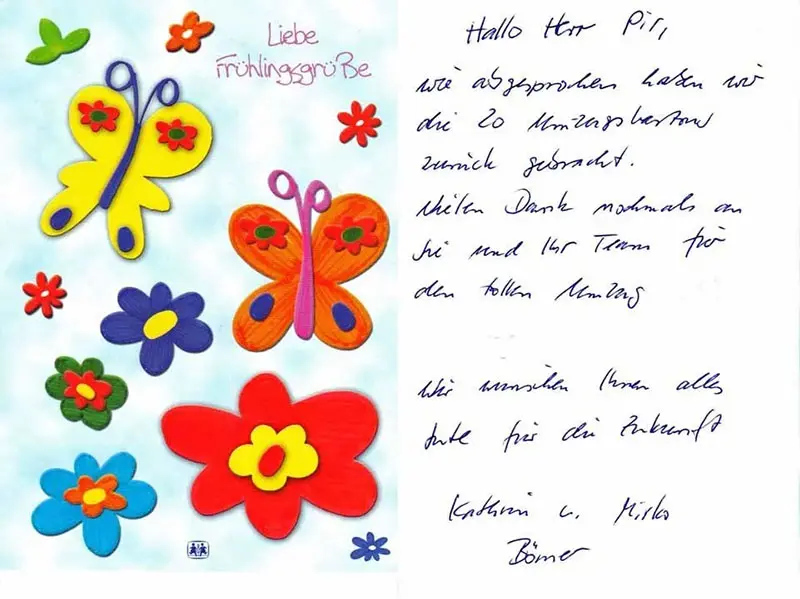 Liebe
Frühlingsgrüße
Hallo Herr Pir,
wie abgesprochen haben wir
die 20 Umzugskartons
zurück gebracht.
Vielen Dank nochmals an
Sie und Ihr Team für
den tollen Umzug
Wir wünschen Ihnen alles
Gute für die Zukunft
Kathrin u. Mirko
Börner